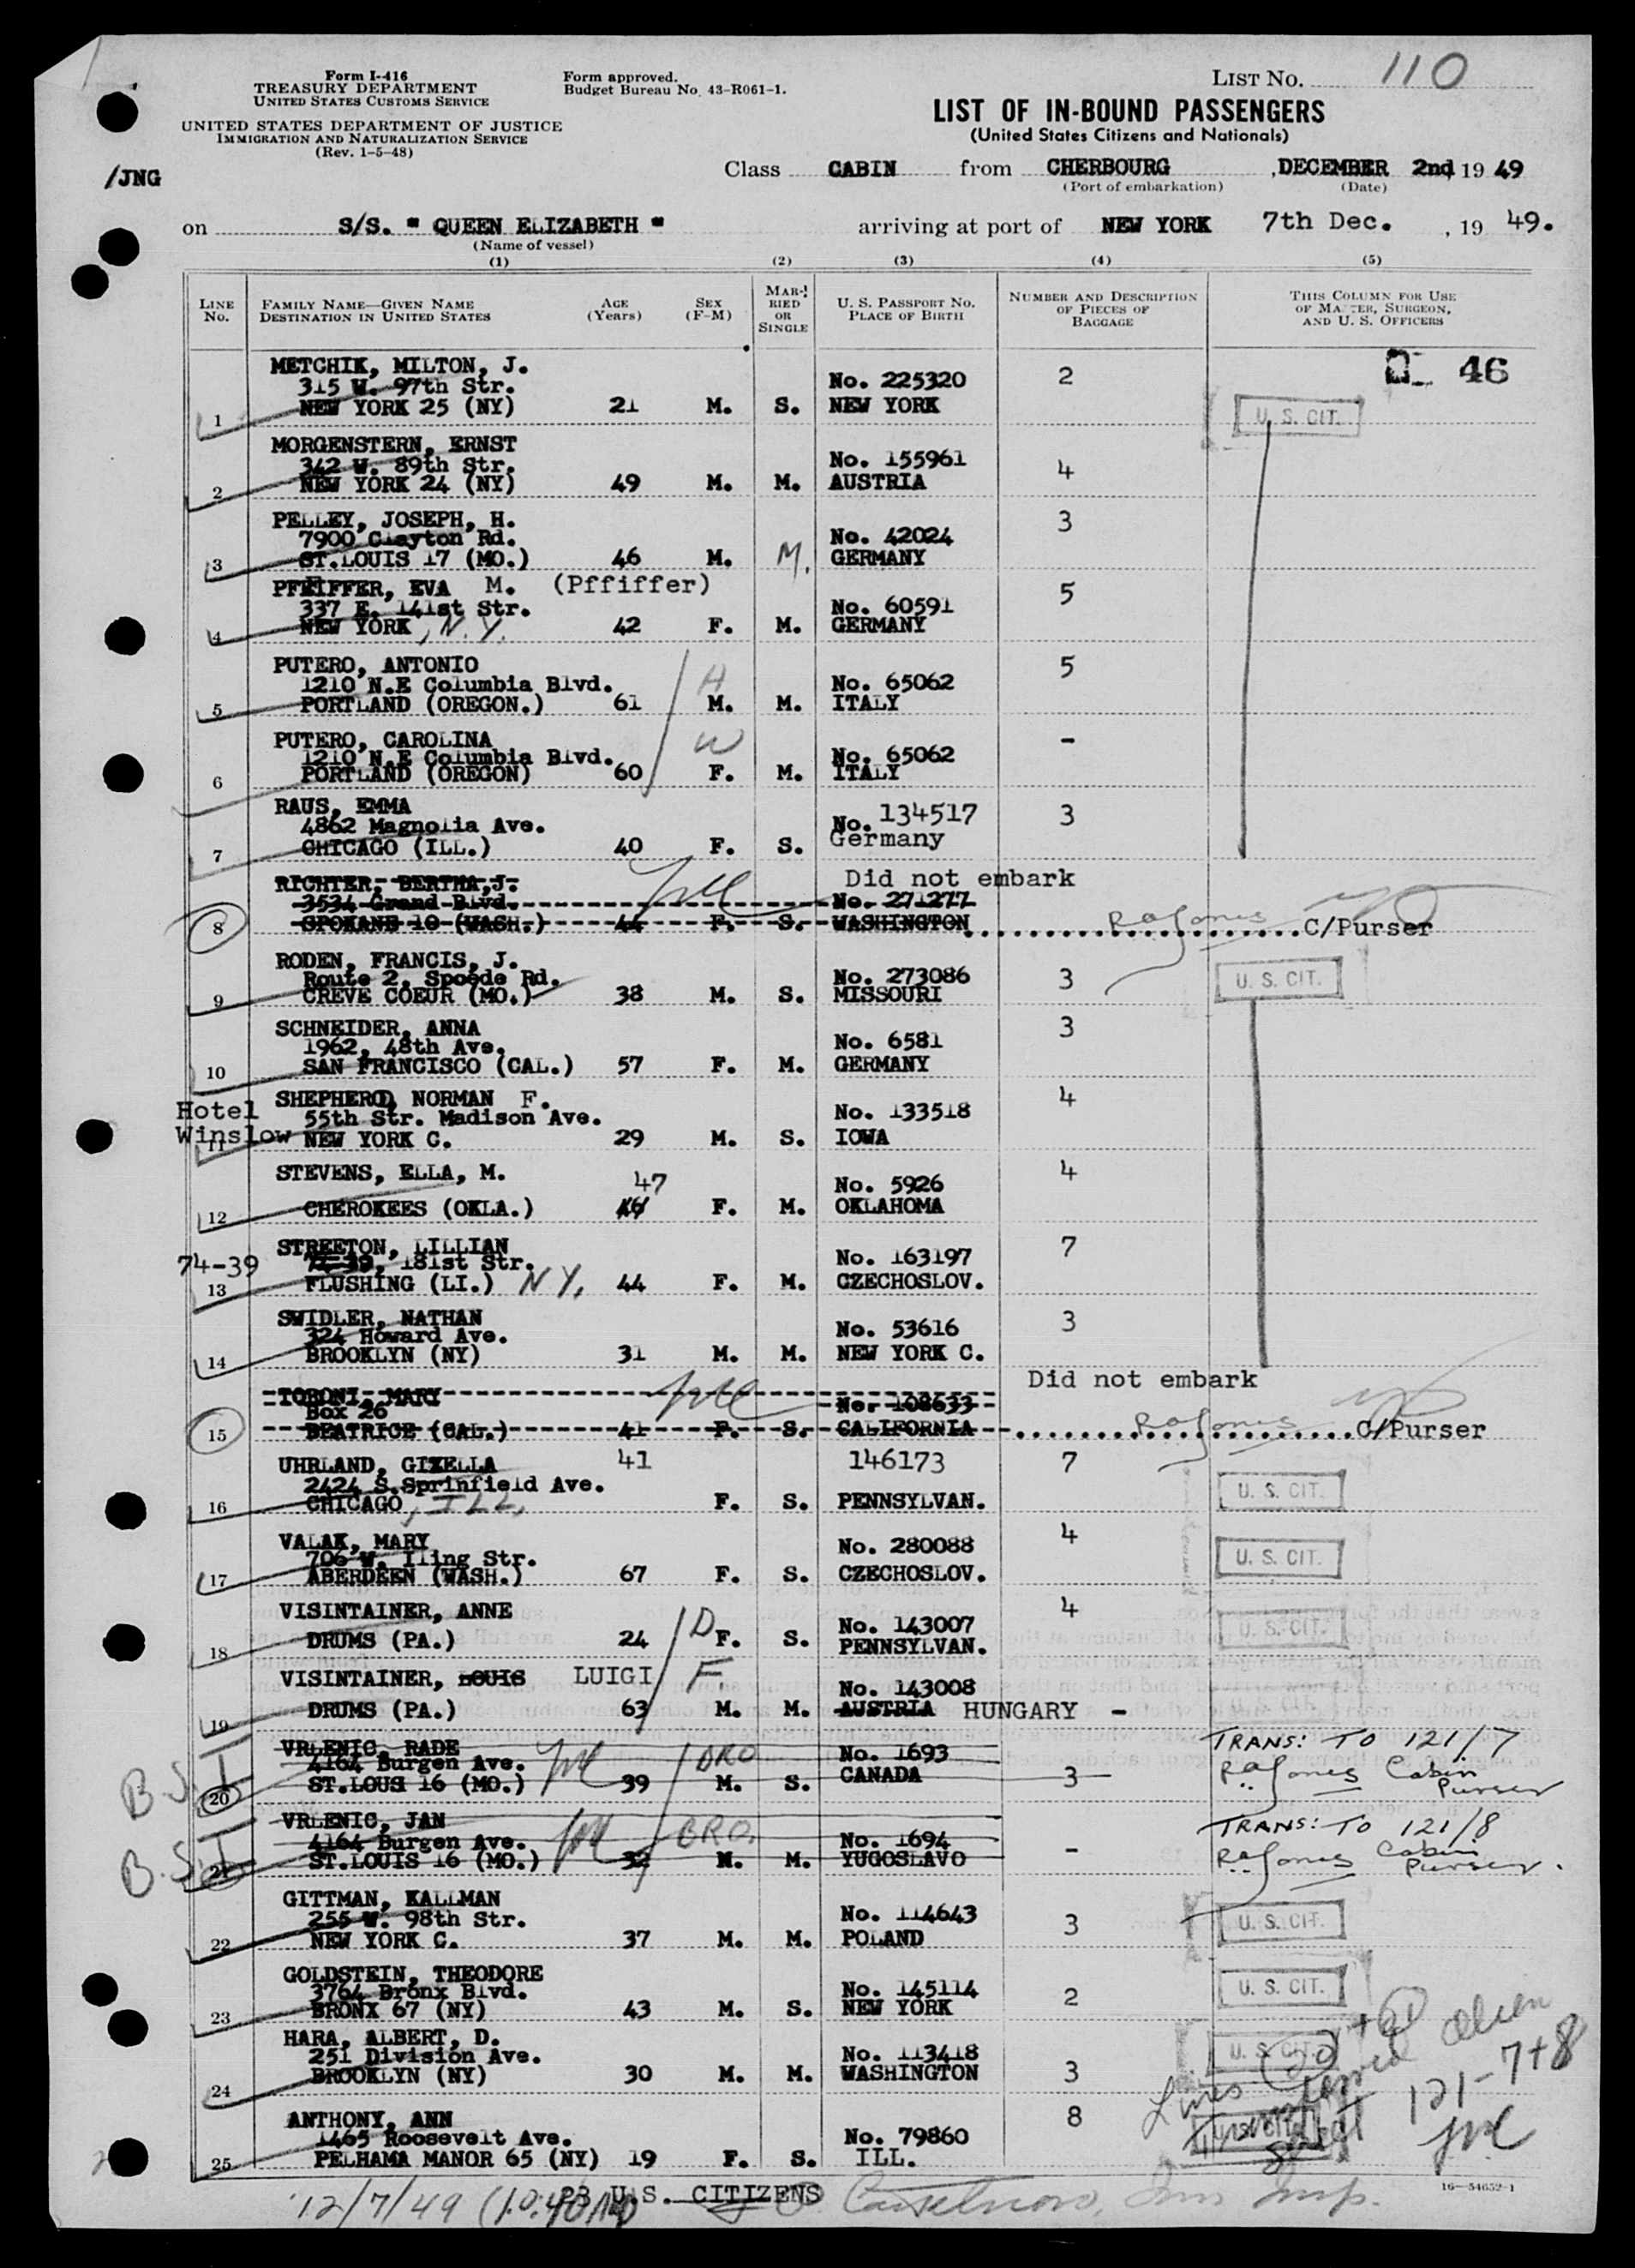 Form I-416
TREASURY DEPARTMENT
UNITED STATES CUSTOMS SERVICE
UNITED STATES DEPARTMENT OF JUSTICE
IMMIGRATION AND NATURALIZATION SERVICE
(Rev. 1-5-48)
Form approved.
Budget Bureau No. 43-R061-1.
LIST NO. 110
LIST OF IN-BOUND PASSENGERS
(United States Citizens and Nationals)
/JNG
Class CABIN from CHERBOURG , DECEMBER 2nd 19 49
(Port of embarkation) (Date)
on S/S. " QUEEN ELIZABETH " arriving at port of NEW YORK 7th Dec. , 19 49.
(Name of vessel)
(1) (2) (3) (4) (5)
LINE No. FAMILY NAME—GIVEN NAME DESTINATION IN UNITED STATES AGE (Years) SEX (F-M) MARRIED OR SINGLE U. S. PASSPORT NO. PLACE OF BIRTH NUMBER AND DESCRIPTION OF PIECES OF BAGGAGE THIS COLUMN FOR USE OF MASTER, SURGEON, AND U. S. OFFICERS
METCHIK, MILTON, J. 46
315 W. 97th Str. No. 225320 2
1 NEW YORK 25 (NY) 21 M. S. NEW YORK U. S. CIT.
MORGENSTERN, ERNST
342 W. 89th Str. No. 155961 4
2 NEW YORK 24 (NY) 49 M. M. AUSTRIA
PELLEY, JOSEPH, H. 3
7900 Clayton Rd. No. 42024
3 ST.LOUIS 17 (MO.) 46 M. M. GERMANY
PFEIFFER, EVA M. (Pffiffer) 5
337 E. 141st Str. No. 60591
4 NEW YORK , N.Y. 42 F. M. GERMANY
PUTERO, ANTONIO 5
1210 N.E Columbia Blvd. H No. 65062
5 PORTLAND (OREGON.) 61 M. M. ITALY
PUTERO, CAROLINA W -
1210 N.E Columbia Blvd. No. 65062
6 PORTLAND (OREGON) 60 F. M. ITALY
RAUS, EMMA 3
4862 Magnolia Ave. No. 134517
7 CHICAGO (ILL.) 40 F. S. Germany
RICHTER, BERTHA,J. Did not embark
3534 Grand Blvd. No. 271277
8 SPOKANE 10 (WASH.) 44 F. S. WASHINGTON RAJones C/Purser
RODEN, FRANCIS, J.
Route 2, Spoede Rd. No. 273086 3 U. S. CIT.
9 CREVE COEUR (MO.) 38 M. S. MISSOURI
SCHNEIDER, ANNA 3
1962, 48th Ave. No. 6581
10 SAN FRANCISCO (CAL.) 57 F. M. GERMANY
Hotel SHEPHERD, NORMAN F. 4
Winslow 55th Str. Madison Ave. No. 133518
11 NEW YORK C. 29 M. S. IOWA
STEVENS, ELLA, M. 47 No. 5926 4
12 CHEROKEES (OKLA.) F. M. OKLAHOMA
STREETON, LILLIAN 7
74-39 74-39, 181st Str. No. 163197
13 FLUSHING (LI.) N Y, 44 F. M. CZECHOSLOV.
SWIDLER, NATHAN 3
324 Howard Ave. No. 53616
14 BROOKLYN (NY) 31 M. M. NEW YORK C.
TORONI, MARY Did not embark
Box 26 No. 108633
15 BEATRICE (CAL.) 41 F. S. CALIFORNIA RAJones C/Purser
UHRLAND, GIZELLA 41 146173 7
2424 S.Sprinfield Ave. U. S. CIT.
16 CHICAGO , ILL, F. S. PENNSYLVAN.
VALAK, MARY No. 280088 4
706 W. Iling Str. U. S. CIT.
17 ABERDEEN (WASH.) 67 F. S. CZECHOSLOV.
VISINTAINER, ANNE D No. 143007 4 U. S. CIT.
18 DRUMS (PA.) 24 F. S. PENNSYLVAN.
VISINTAINER, LOUIS LUIGI F. No. 143008
19 DRUMS (PA.) 63 M. M. AUSTRIA HUNGARY -
VRLENIC, RADE BRO No. 1693 TRANS: TO 121/7
B.S.I 4164 Burgen Ave. RAJones Cabin Purser
20 ST.LOUS 16 (MO.) 39 M. S. CANADA 3
VRLENIC, JAN BRO. TRANS: TO 121/8
B.S.I 4164 Burgen Ave. No. 1694 RAJones Cabin Purser.
21 ST.LOUIS 16 (MO.) 32 M. M. YUGOSLAVO -
GITTMAN, KALLMAN
255 W. 98th Str. No. 114643 3 U. S. CIT.
22 NEW YORK C. 37 M. M. POLAND
GOLDSTEIN, THEODORE
3764 Bronx Blvd. No. 145114 2 U. S. CIT.
23 BRONX 67 (NY) 43 M. S. NEW YORK
HARA, ALBERT, D.
251 Division Ave. No. 113418 U. S. CIT.
24 BROOKLYN (NY) 30 M. M. WASHINGTON 3
ANTHONY, ANN 8
1465 Roosevelt Ave. No. 79860
25 PELHAMA MANOR 65 (NY) 19 F. S. ILL.
Lines 20 + 21 Alien 121-7+8
23 U.S. CITIZENS
12/7/49
16—54652-1